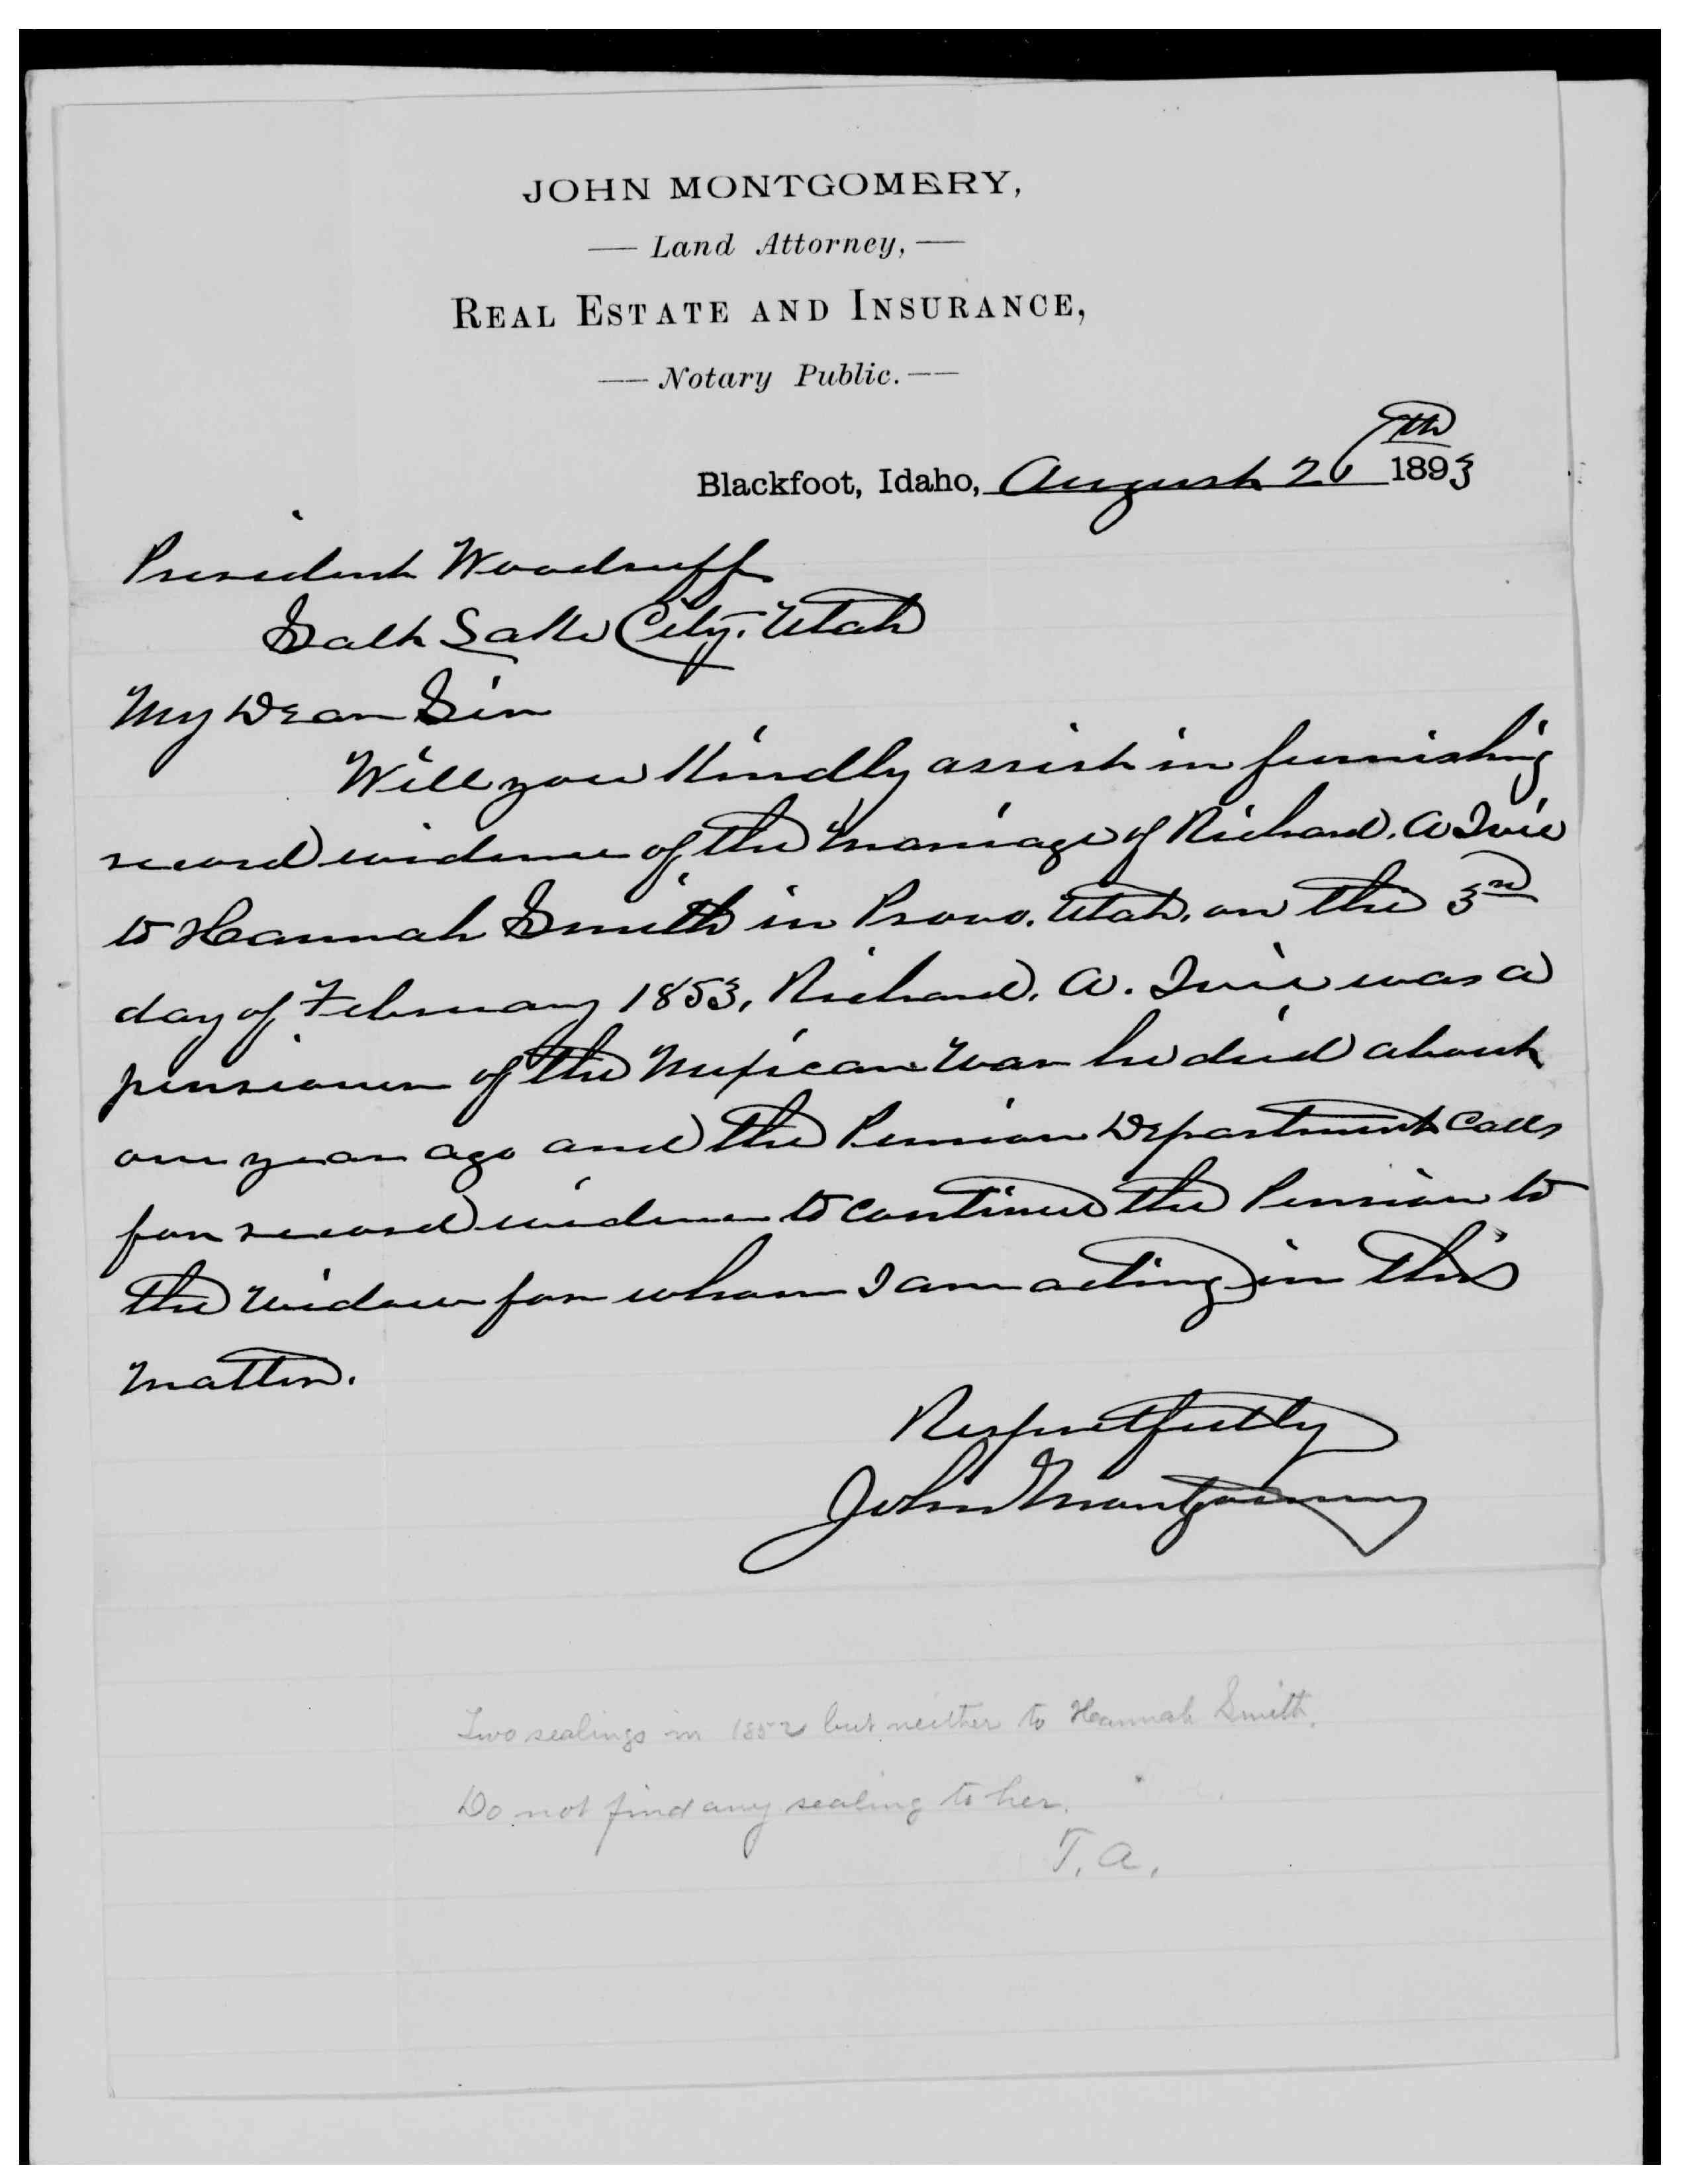 JOHN MONTGOMERY,
— Land Attorney, —
REAL ESTATE AND INSURANCE,
— Notary Public. —
Blackfoot, Idaho, August 26th 1893
President Woodruff
Salt Lake City, Utah
My Dear Sir
Will you Kindly assist in furnishing
record evidence of the marriage of Richard. A Ivie
to Hannah Smith in Provo. Utah. on the 3rd
day of February 1853, Richard. A. Ivie was a
pensioner of the Mexican War he died about
one year ago and the Pension Department Calls
for record evidence to continue the Pension to
the Widow for whom I am acting in this
matter.
Respectfully
John Montgomery
Two sealings in 1852 but neither to Hannah Smith.
Do not find any sealing to her.
T. A.